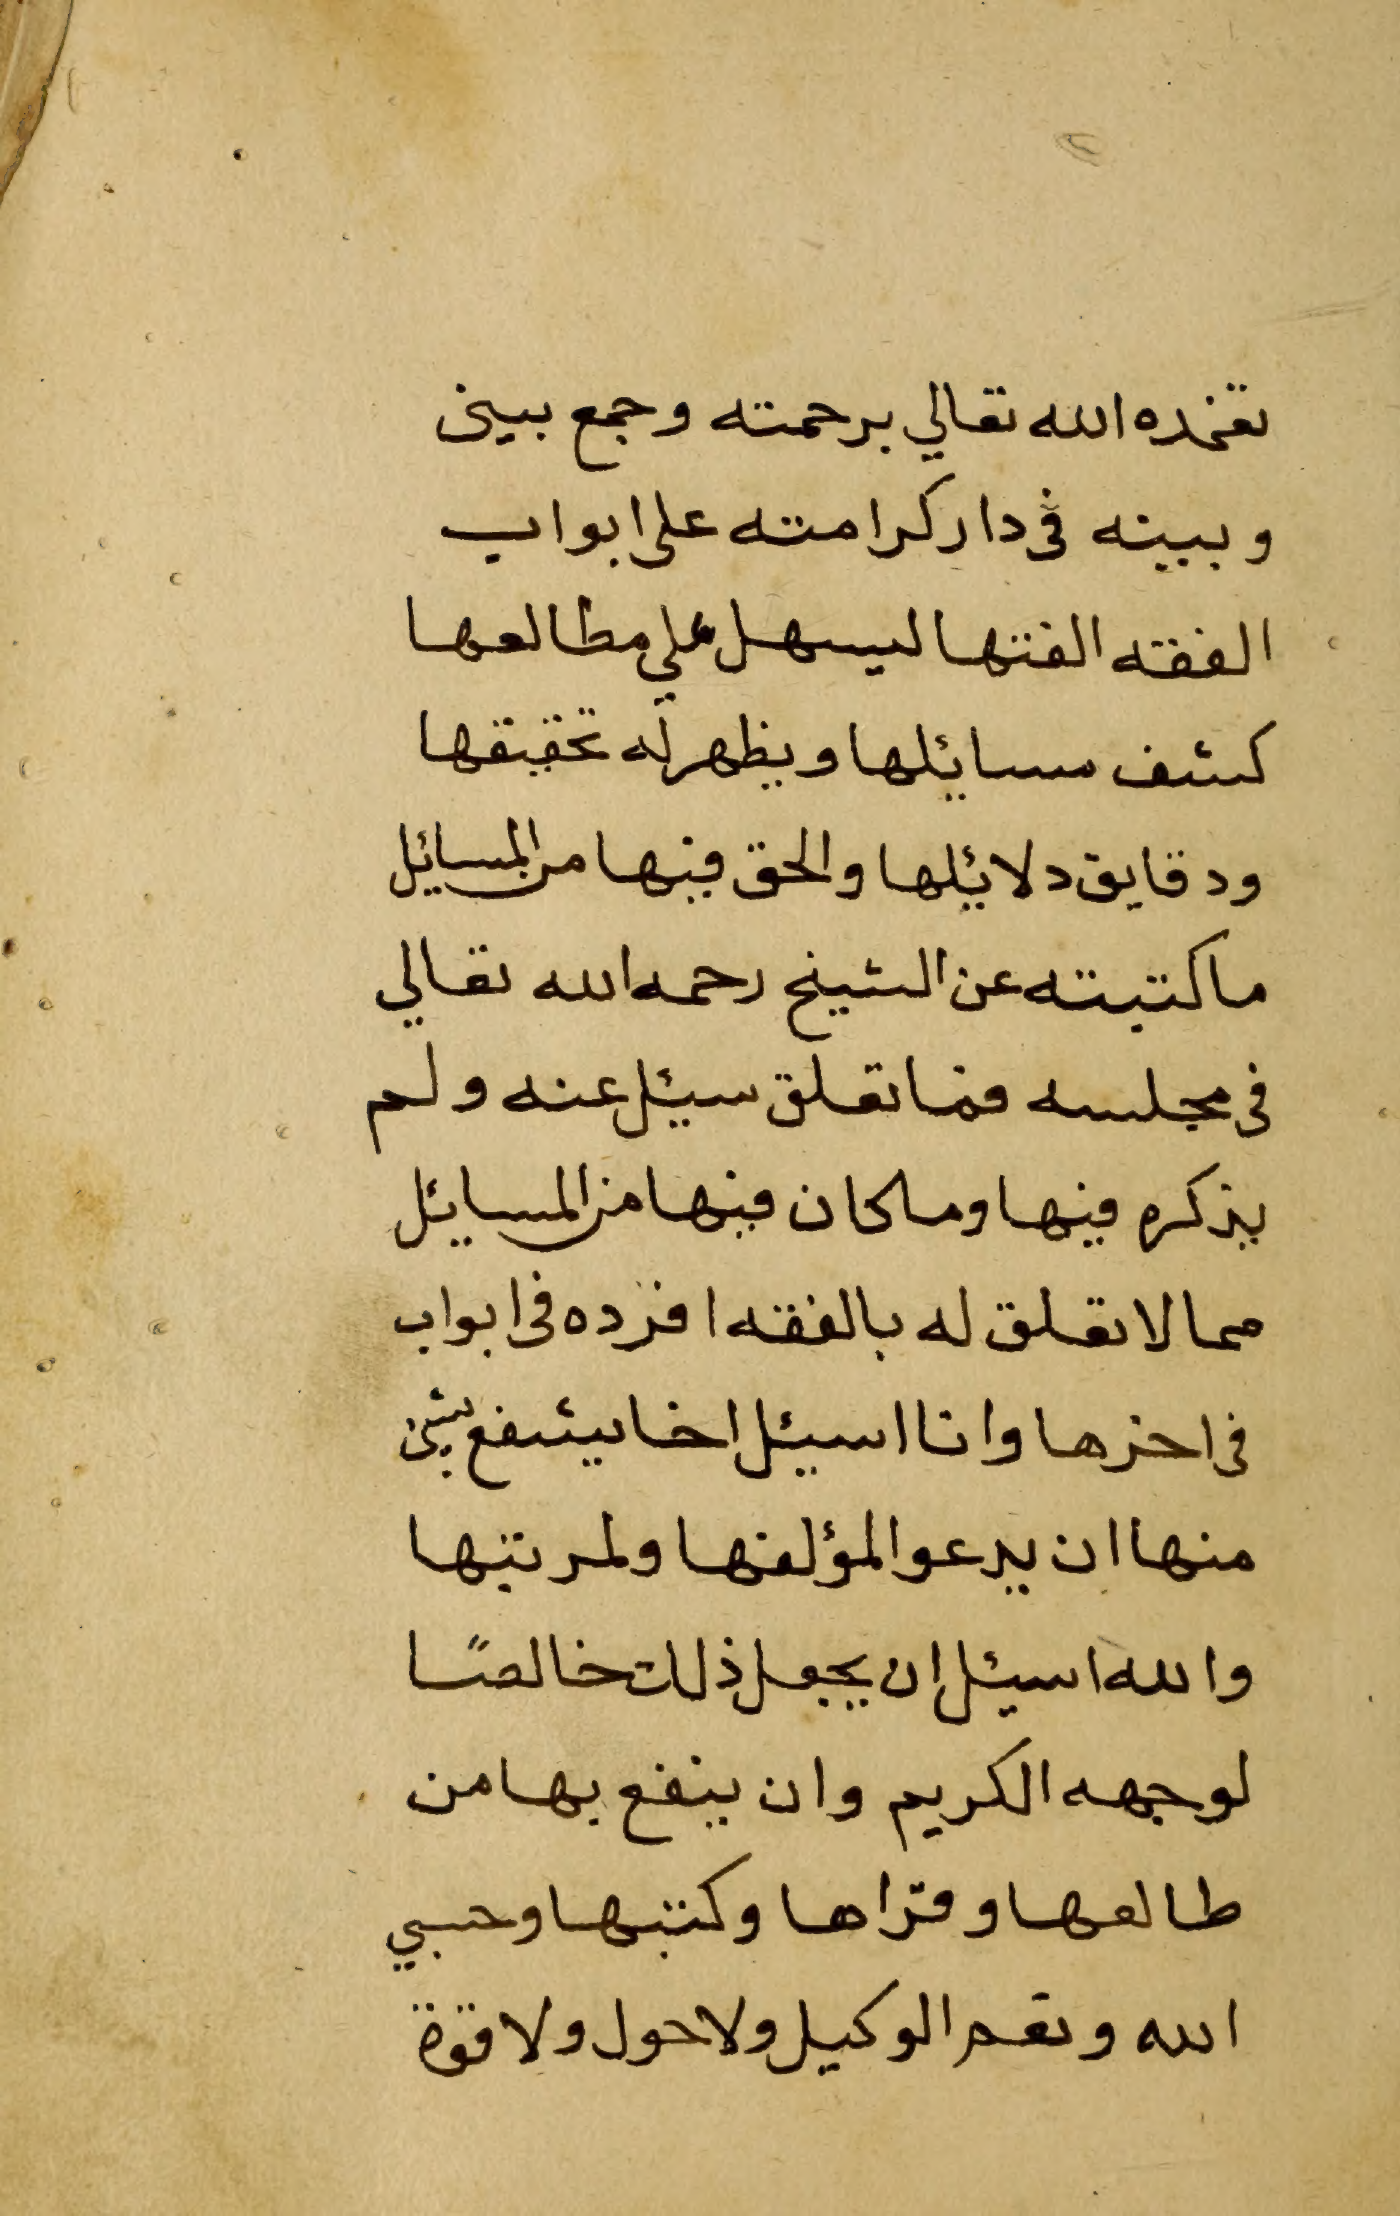 تغمده الله تعالي برحمته وجمع بيني
وبينه في دار كرامته على ابواب
الفقه الفتها ليسهل علي مطالعها
كشف مسائلها ويظهر له تحقيقها
ودقايق دلائلها والحق فيها من المسائل
ما كتبته عن الشيخ رحمه الله تعالي
في مجلسه فما تعلق سئل عنه ولم
يذكره فيها وما كان فيها من المسائل
مما لا تعلق له بالفقه افرده في ابواب
في اخرها وانا اسئل اخا ينتفع بشئ
منها ان يدعوا لمؤلفها ولمرتبها
والله اسئل ان يجعل ذلك خالصًا
لوجهه الكريم وان ينفع بها من
طالعها وقراها وكتبها وحسبي
الله ونعم الوكيل ولا حول ولا قوة